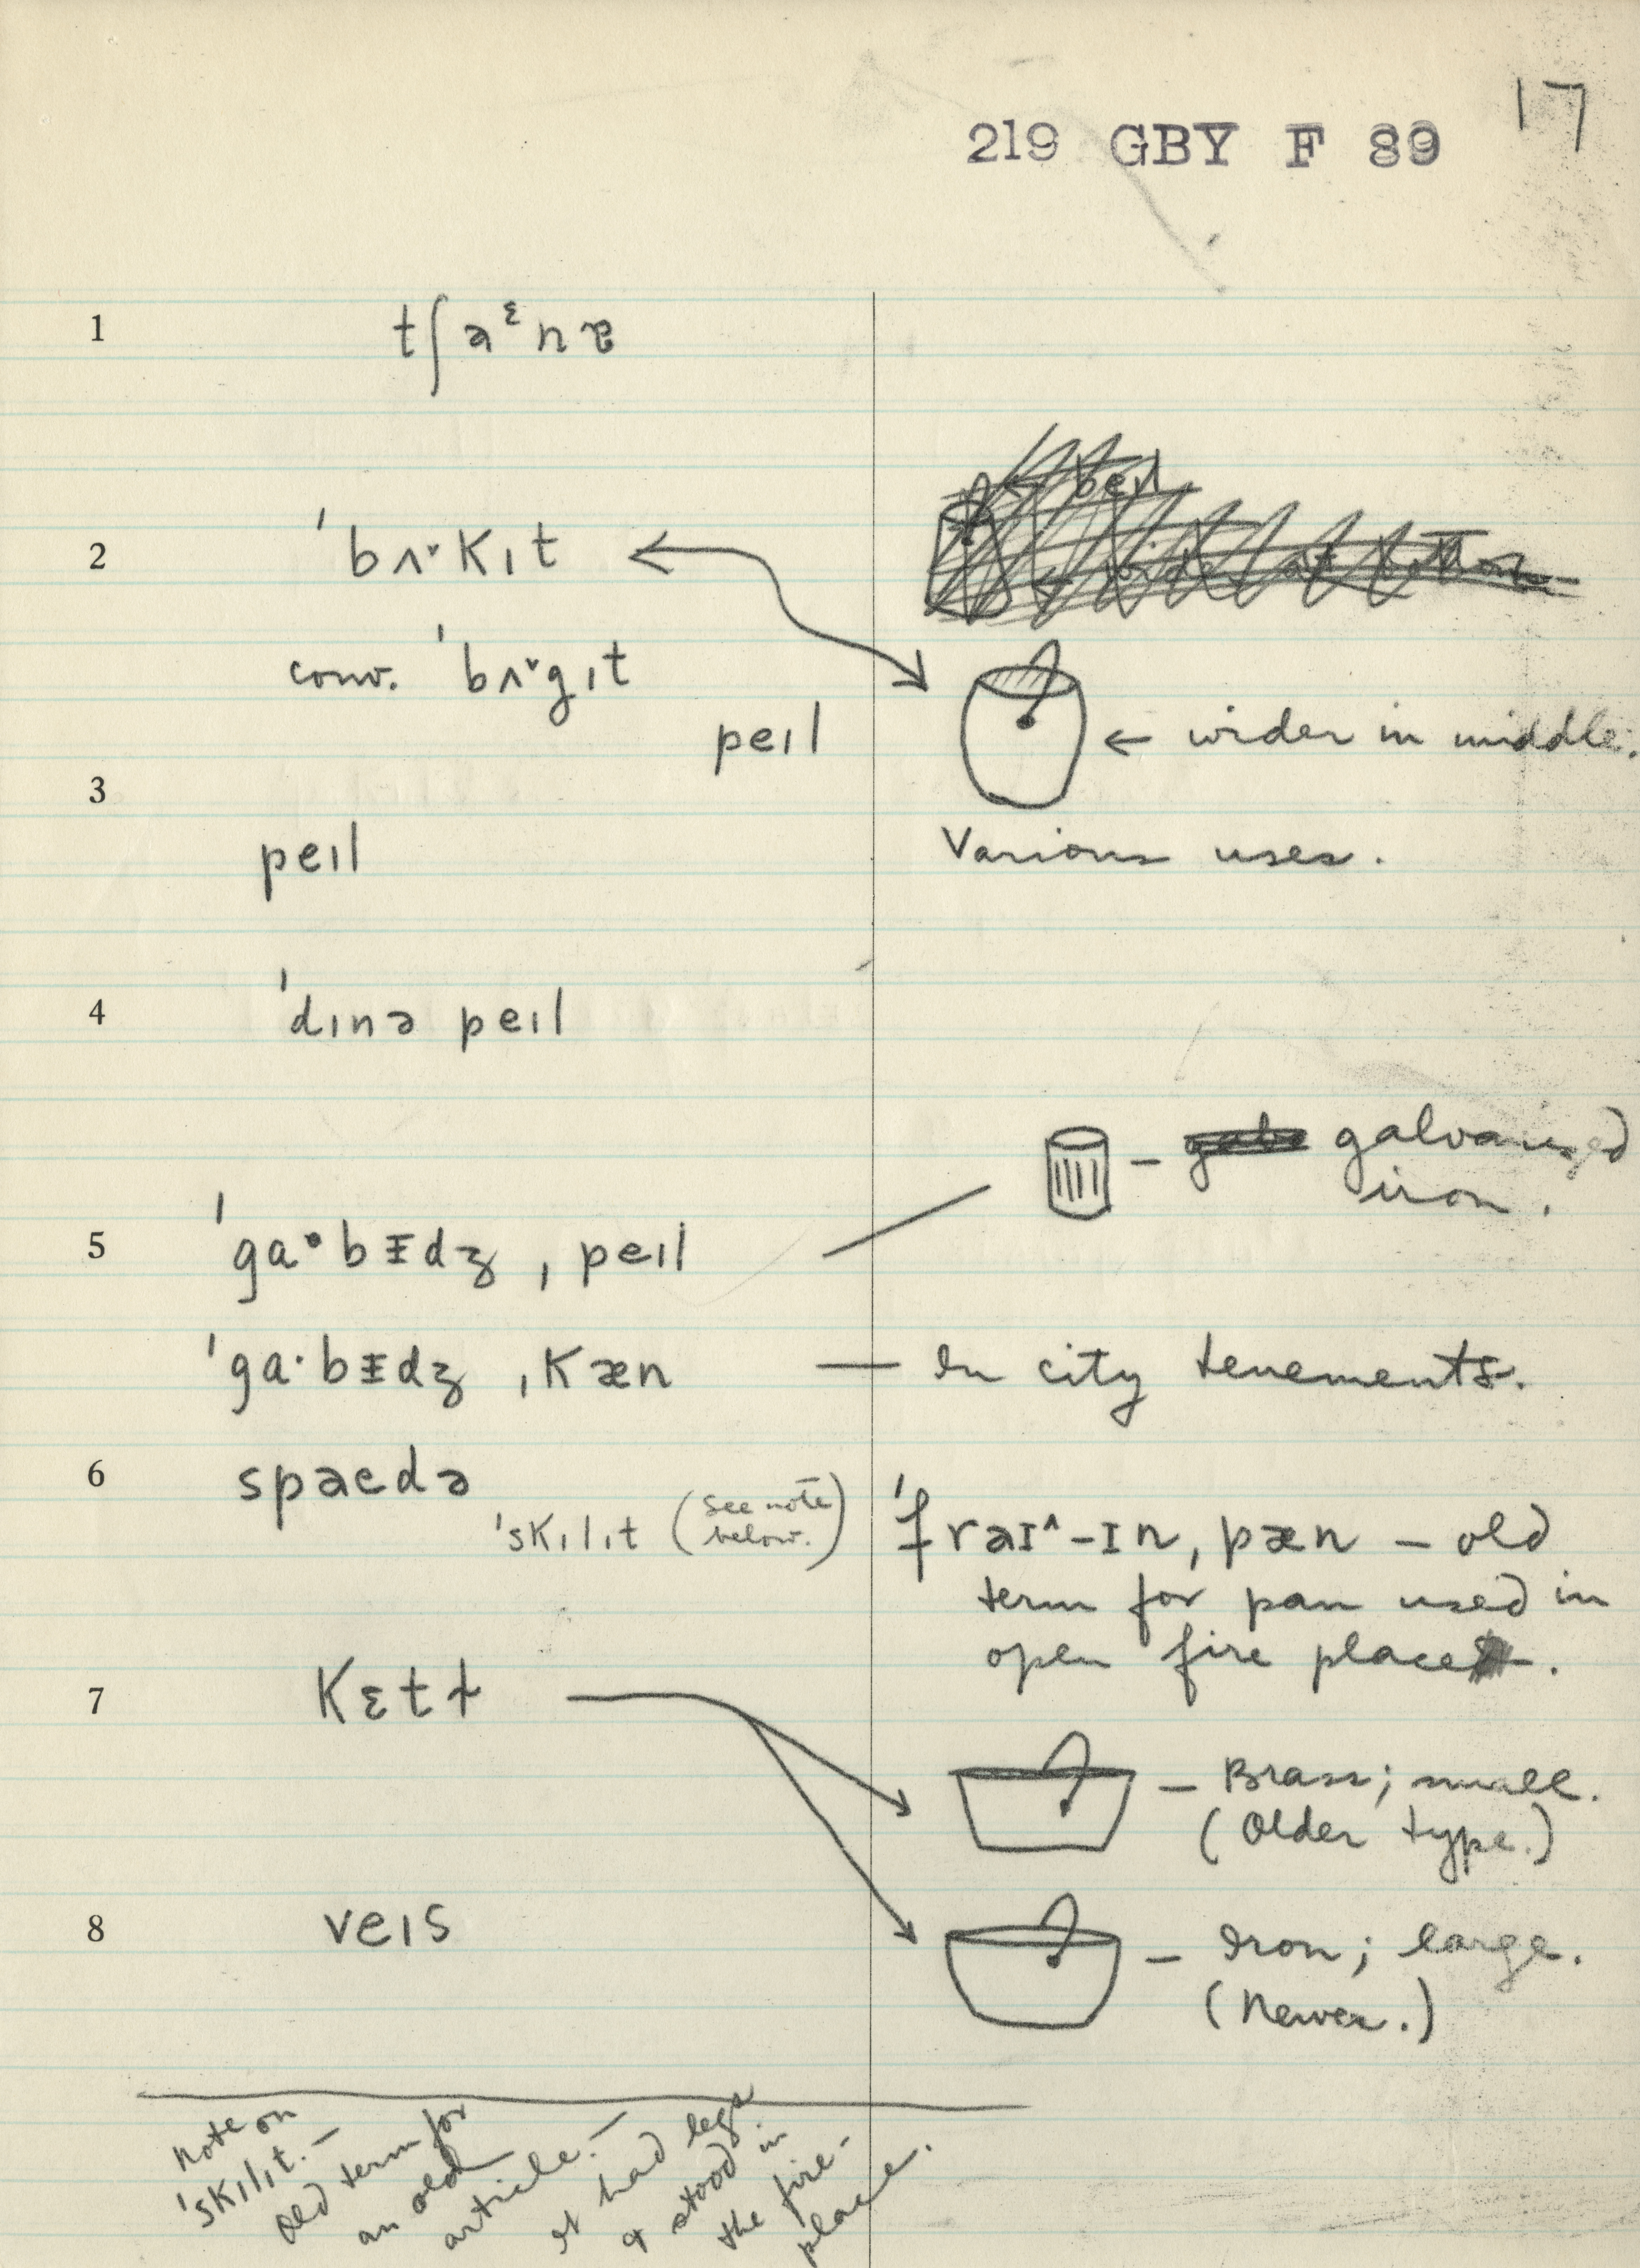 17
219 GBY F 89
1 tʃaᵋnɐ
2 ˈbʌ˅kɪt
conv. ˈbʌ˅gɪt
peɪl
← wider in middle.
3
peɪl
Various uses.
4 ˈdɪnə peɪl
galvanized
iron.
5 ˈga·bɪdʒ ˌpeɪl
ˈga·bɪdʒ ˌkæn — In city tenements.
6 spaɛdə
ˈskɪlɪt (see note
below.)
ˈfraɪ^-ɪn, pæn – old
term for pan used in
open fire place.
7 kɛtɫ
– Brass; small.
(Older type.)
8 veɪs
– Iron; large.
(Newer.)
Note on
ˈskɪlɪt. –
Old term for
an old
article. –
It had legs
& stood in
the fire-
place.